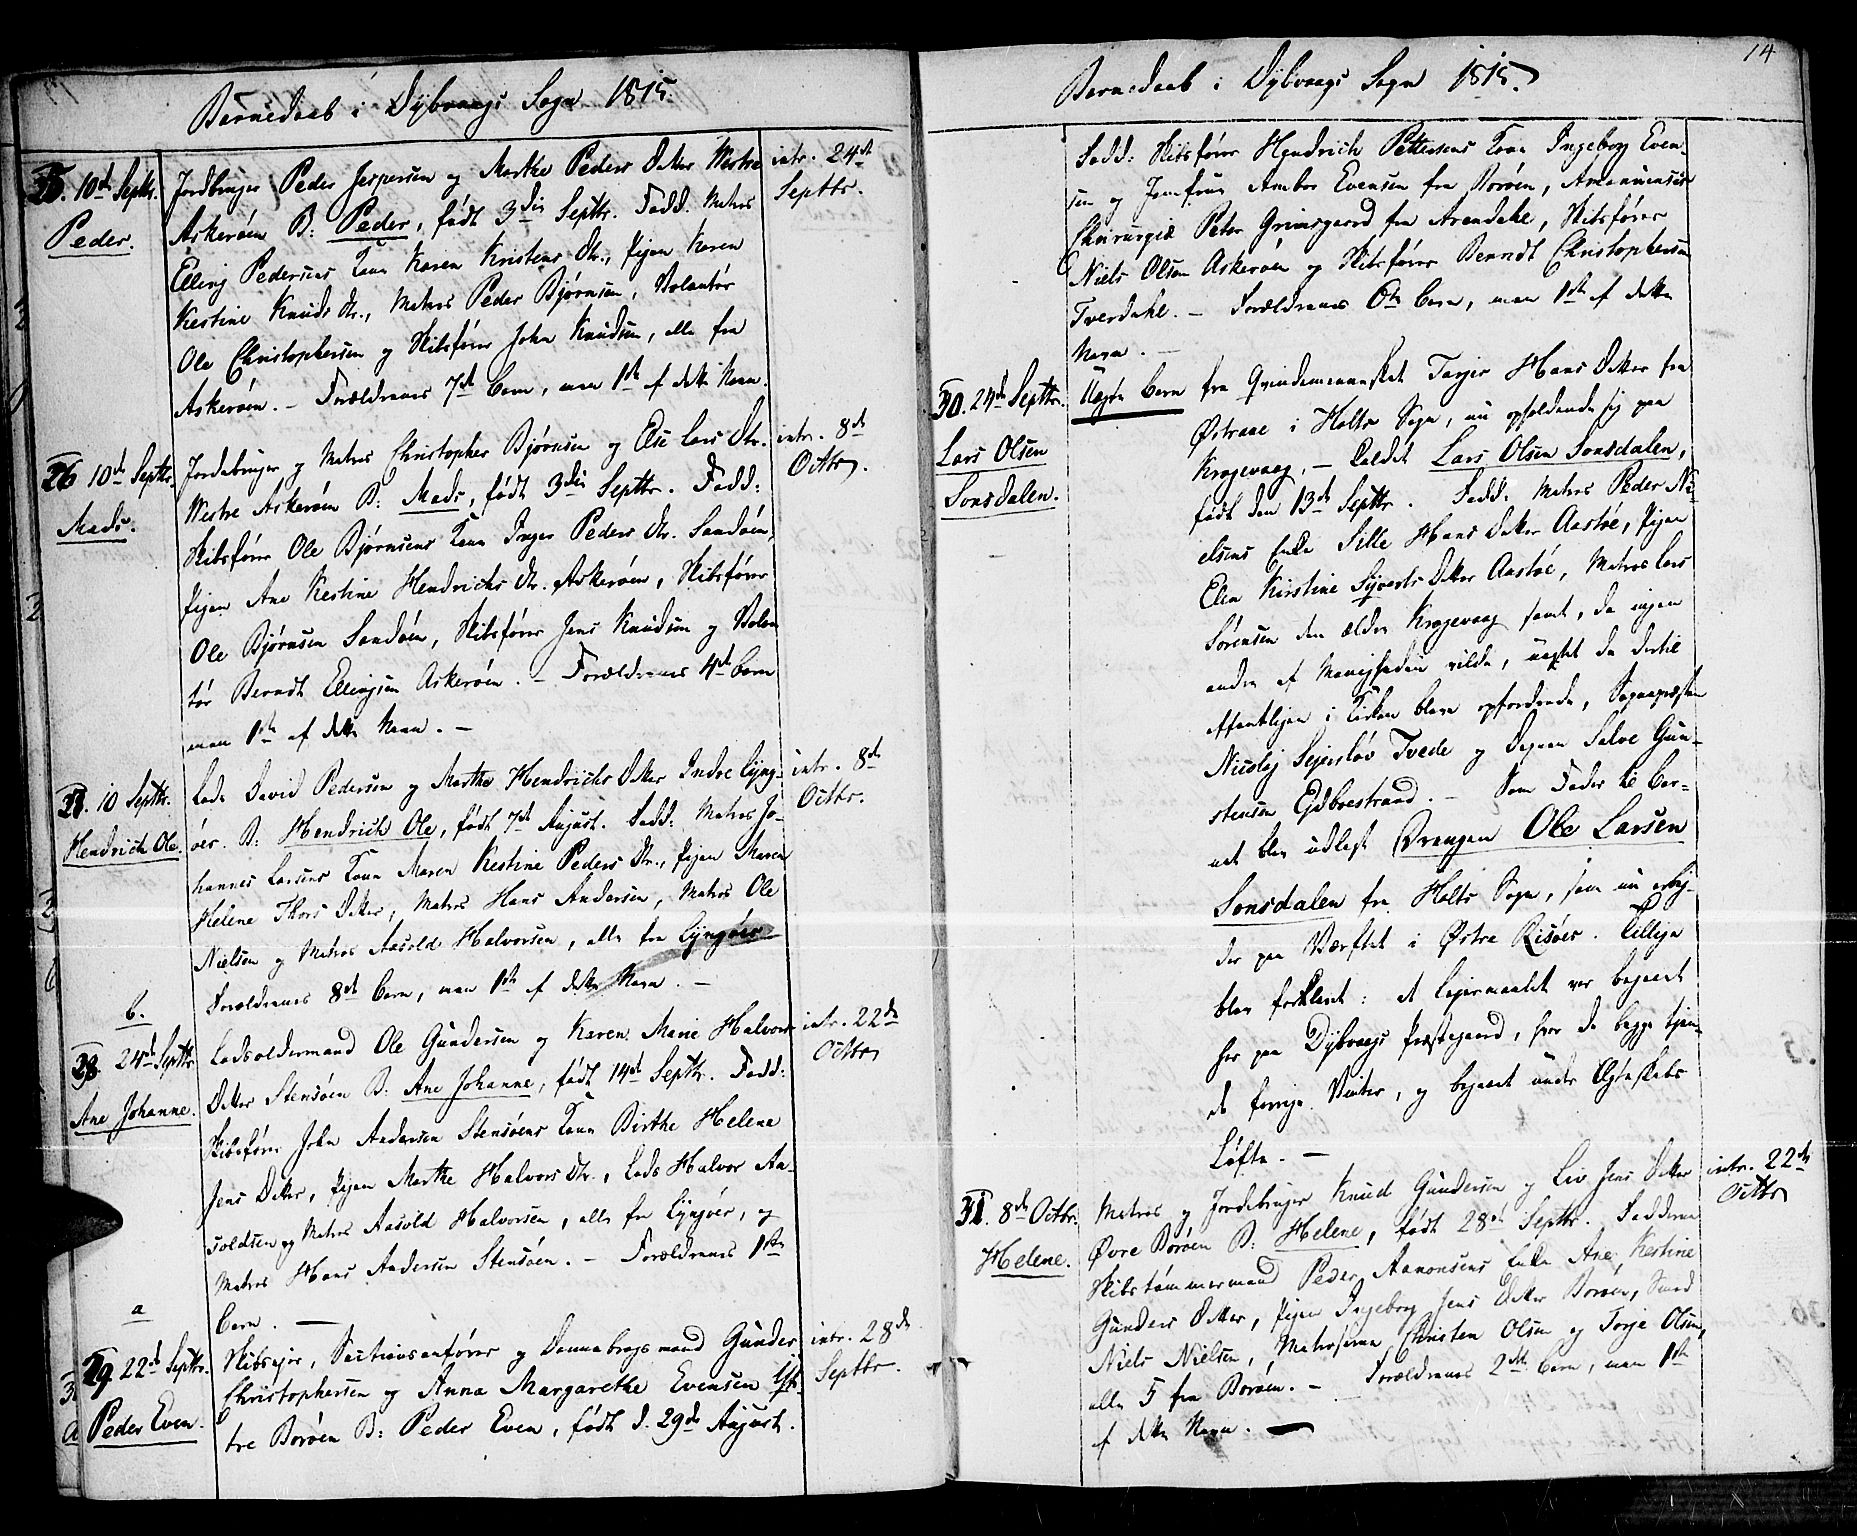 Barnedaab i Dybvaags Sogn 1815.
25. 10de Septbr.
Peder.
Jordbruger Peder Jespersen og Marthe Peders Datter Westre
Askerøen B: Peder, født 3die Septbr. Fadd. Matros
Elling Pedersens Kone Karen Kristens Dtr., Pigen Karen
Kestine Knuds Dtr., Matros Peder Bjørnsen, Volontør
Ole Christophersen og Skibsfører John Knudsen, alle fra
Askerøen. – Forældrenes 7de Barn, men 1ste af dette Navn.
intr. 24de
Septbr.
26 10de Septbr.
Mads.
Jordebruger og Matros Christopher Bjørnsen og Else Lars Dtr.
Westre Askerøen B: Mads, født 3die Septbr. Fadd:
Skibsfører Ole Bjørnsens Kone Inger Peders Dtr. Sandøen,
Pigen Ane Kestine Hendrichs Dtr. Askerøen, Skibsfører
Ole Bjørnsen Sandøen, Skibsfører Jens Knudsen og Volon
tør Berndt Ellingsen Askerøen. – Forældrenes 4de Barn
men 1ste af dette Navn. –
intr. 8de
Octbr.
27. 10 Septbr.
Hendrich Ole.
Lods David Pedersen og Marthe Hendrichs Datter Indre Lyng-
öer. B: Hendrich Ole, født 7de August. Fadd: Matros Jo-
hannes Larsens Kone Maren Kestine Peders Dtr., Pigen Maren
Helene Thors Datter, Matros Hans Andersen, Matros Ole
Nielsen og Matros Aasold Halvorsen, alle fra Lyngöer
Forældrenes 8de Barn, men 1ste af dette Navn. –
intr. 8de
Octbr.
b.
28. 24de Septbr.
Ane Johanne.
Lodsoldermand Ole Gundersen og Karen Marie Halvors
Datter Stensøen B: Ane Johanne, født 14de Septbr. Fadd:
Skibsfører John Andersen Stensøens Kone Birthe Helene
Jens Datter, Pigen Marthe Halvors Dtr., Lods Halvor Aa-
soldsen og Matros Aasold Halvorsen, alle fra Lyngöer, og
Matros Hans Andersen Stensøen. – Forældrenes 1ste
Barn. –
intr. 22de
Octbr
a
29. 22de Septbr.
Peder Even.
Skibsejer, Sectionsanfører og Dannebrogsmand Gunder
Christophersen og Anna Margarethe Evensen Yt-
tre Borøen B: Peder Even, født d. 29de August.
intr. 28de
Septbr.
14
Barnedaab i Dybvaags Sogn 1815.
Fadd: Skibsfører Hendrich Pettersens Kone Ingeborg Even-
sen og Jomfrue Ambor Evensen fra Borøen, Amanuensis
Chirurgiæ Peter Grimsgaard fra Arendahl, Skibsfører
Niels Olsen Askerøen og Skibsfører Berndt Christophersen
Tverdahl. – Forældrenes 6te Barn, men 1ste af dette
Navn. –
30. 24de Septbr.
Lars Olsen
Sonsdalen.
Uægte Barn fra Qvindemennesket Tarjer Hans Datter fra
Østraae i Holts Sogn, nu opholdende sig paa
Krogevaag, – Kaldet Lars Olsen Sonsdalen,
født den 13de Septbr. Fadd: Matros Peder Ni-
elsens Enke Sille Hans Datter Aastøe, Pigen
Elen Kirstine Syverts Datter Aastøe, Matros Lars
Sørensen den ældre Krogevaag samt, da ingen
andre af Menigheden vilde, uagtet de dertil
offentligen i Kirken bleve opfordrede, Sognepræsten
Nicolej Sejersløv Tvede og Degnen Salve Gun-
stensen Eydboestrand. – Som Fader til Bar-
net blev udlagt Drengen Ole Larsen
Sonsdalen fra Holts Sogn, som nu arbej-
der paa Værftet i Østre Risöer. Tillige
blev forklaret: at Lejermaalet var begaaet
her paa Dybvaags Præstegaard, hvor de begge tjen-
te forrige Vinter, og begaaet under Ægteskabs
Løfte. –
31. 8de Octbr.
Helene.
Matros og Jordebruger Knud Gundersen og Liv Jens Datter
Øvre Borøen B: Helene, født 28de Septbr. Fadderne
Skibstømmermand Peder Aanonsens Enke Ane Kestine
Gunders Datter, Pigen Ingeborg Jens Datter Borøen,
Niels Nielsen, Matroserne Christen Olsen og Torje Olsen,
alle 5 fra Borøen. – Forældrenes 2det Barn, men 1ste
af dette Navn. –
intr. 22de
Octbr